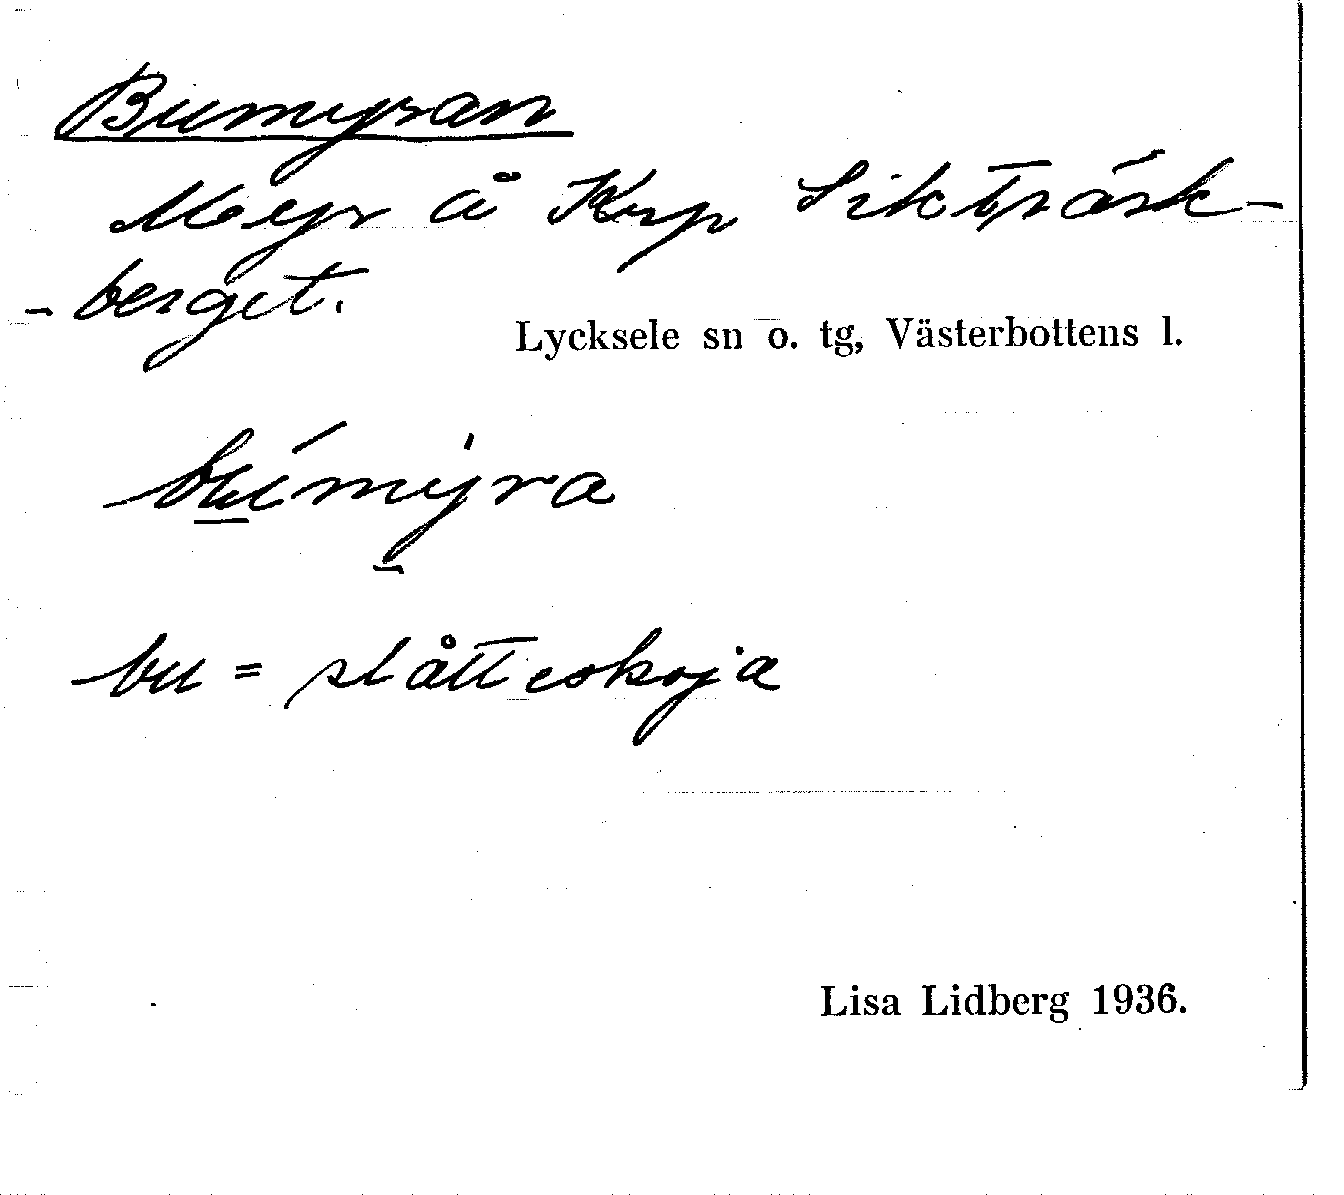 Bumyran
Myr å Krp Sikträsk-
-berget.
Lycksele sn o. tg, Västerbottens l.
búmýra
bu = slåtteskoja
Lisa Lidberg 1936.